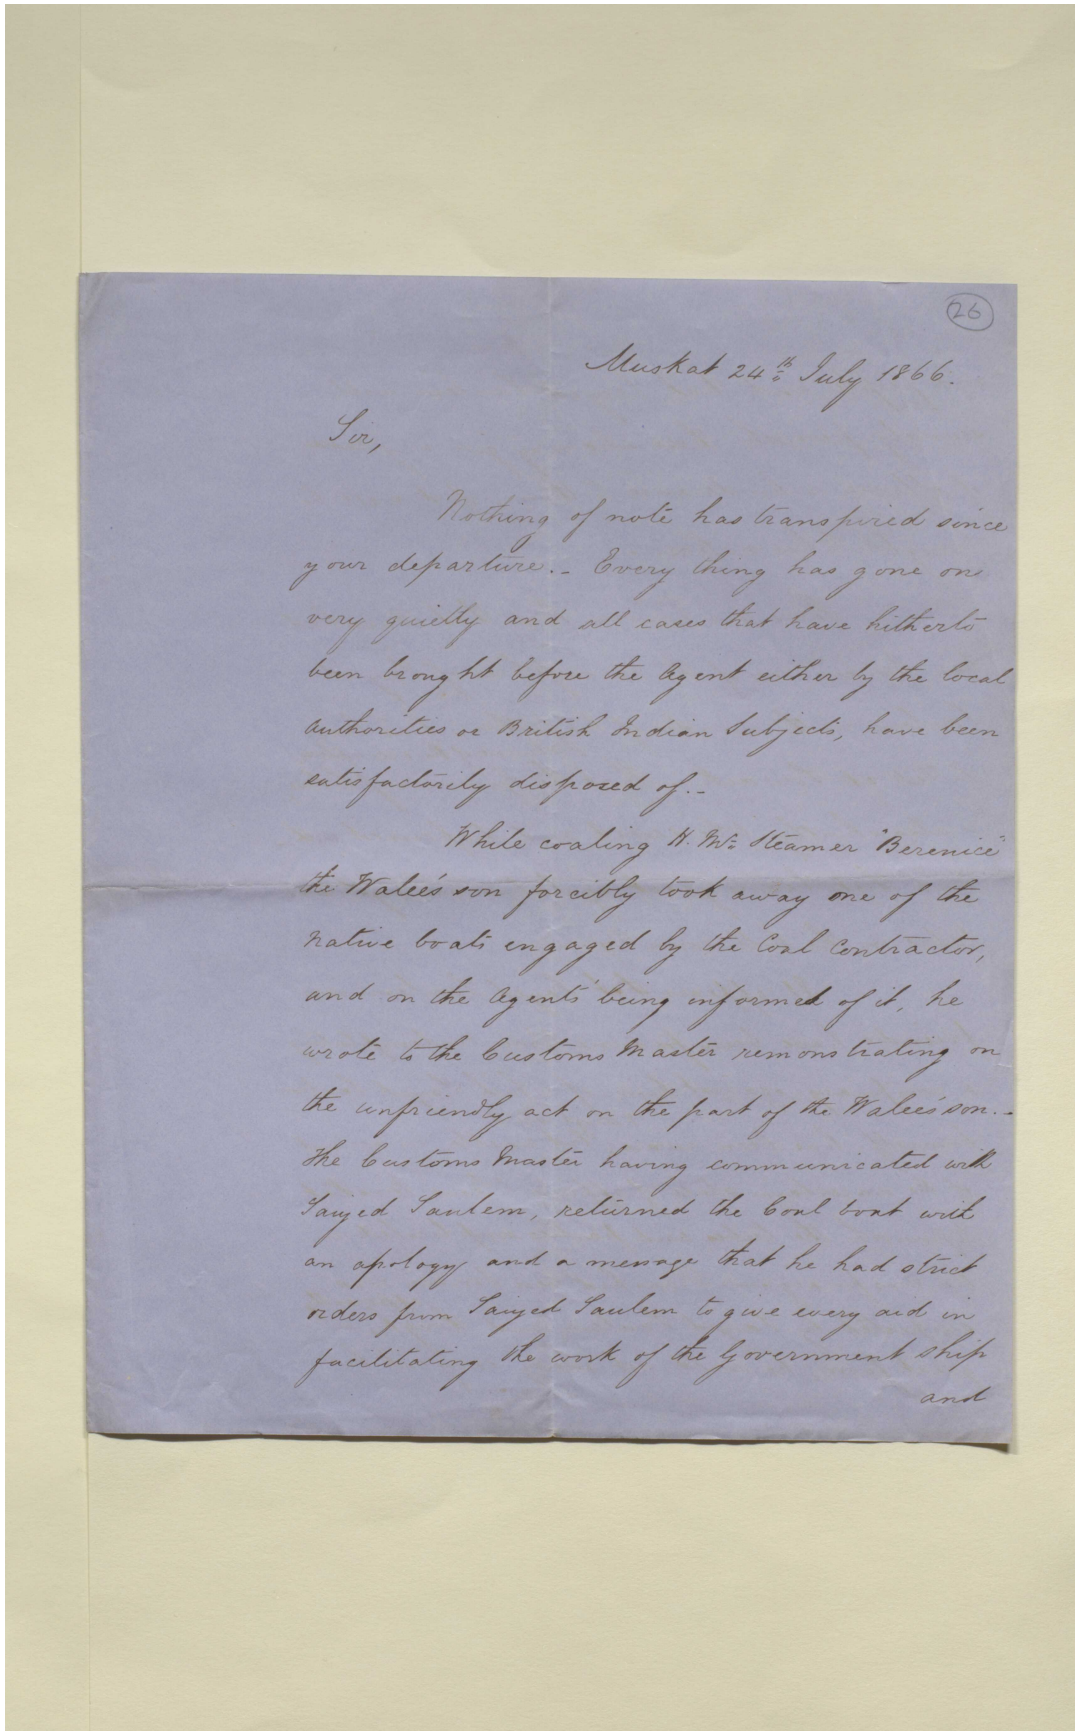 26
Muskat 24th July 1866.
Sir,
Nothing of note has transpired since
your departure. - Every thing has gone on
very quietly and all cases that have hitherto
been brought before the Agent either by the local
authorities or British Indian Subjects, have been
satisfactorily disposed of. -
While coaling H. Ms. Steamer "Berenice"
the Walee's son forcibly took away one of the
native boats engaged by the Coal Contractor,
and on the Agents' being informed of it, he
wrote to the Customs Master remonstrating on
the unfriendly act on the part of the Walee's son. -
The Customs Master having communicated with
Saiyed Saulem, returned the Coal boat with
an apology and a message that he had strict
orders from Saiyed Saulem to give every aid in
facilitating the work of the Government ship
and